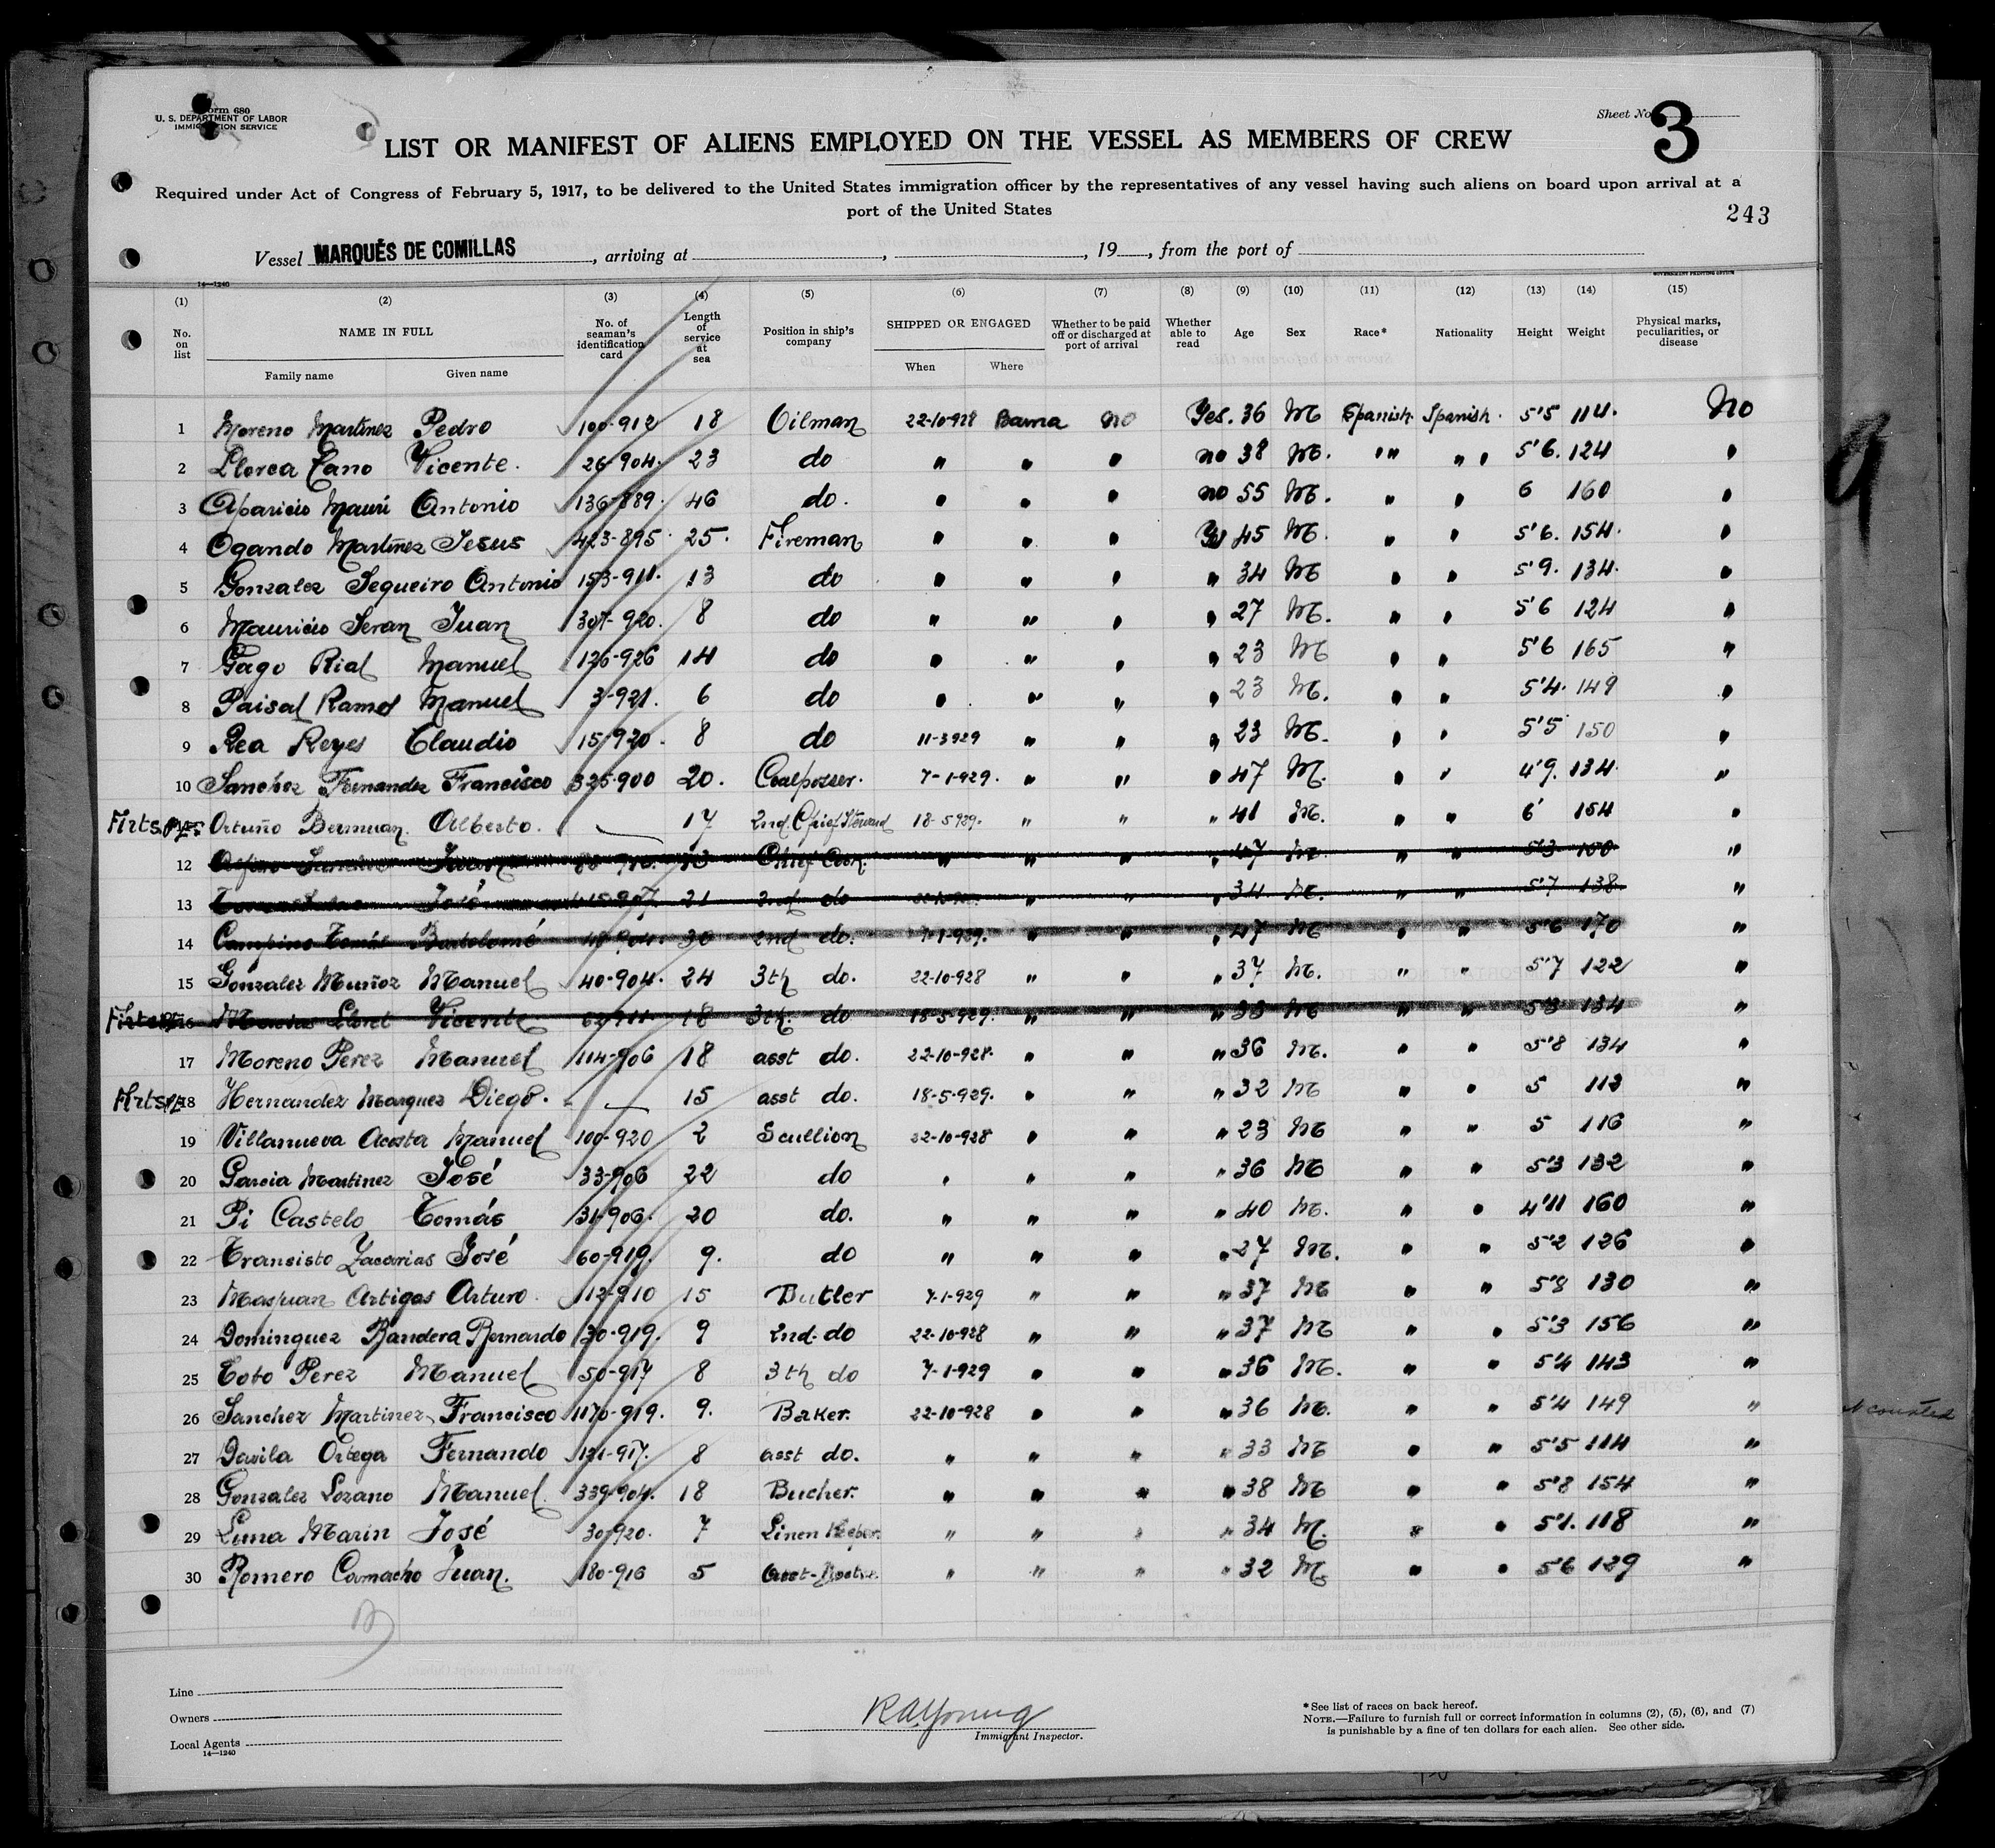 Form 680
U. S. DEPARTMENT OF LABOR
IMMIGRATION SERVICE
Sheet No. 3
LIST OR MANIFEST OF ALIENS EMPLOYED ON THE VESSEL AS MEMBERS OF CREW
Required under Act of Congress of February 5, 1917, to be delivered to the United States immigration officer by the representatives of any vessel having such aliens on board upon arrival at a
port of the United States
243
Vessel MARQUÉS DE COMILLAS, arriving at , , 19 , from the port of
14—1240 GOVERNMENT PRINTING OFFICE
(1) (2) (3) (4) (5) (6) (7) (8) (9) (10) (11) (12) (13) (14) (15)
No. on list NAME IN FULL No. of seaman's identification card Length of service at sea Position in ship's company SHIPPED OR ENGAGED Whether to be paid off or discharged at port of arrival Whether able to read Age Sex Race* Nationality Height Weight Physical marks, peculiarities, or disease
Family name Given name When Where
1 Moreno Martinez Pedro 100-912 18 Oilman 22-10-928 Barna no Yes. 36 M Spanish Spanish. 5'5 114. No
2 Llorca Cano Vicente. 26-904. 23 do " " " no 38 M. " " 5'6. 124 "
3 Aparicio Mauri Antonio 136-889. 46 do. " " " no 55 M. " " 6 160 "
4 Ogando Martinez Jesus 423-895. 25. Fireman " " " Yes 45 M. " " 5'6. 154. "
5 Gonzalez Sequeiro Antonio 153-911. 13 do " " " " 34 M " " 5'9. 134. "
6 Mauricio Seran Juan 307-920. 8 do " " " " 27 M. " " 5'6 124 "
7 Gago Rial Manuel 126-926 14 do " " " " 23 M " " 5'6 165 "
8 Paisal Ramos Manuel 3-921. 6 do " " " " 23 M. " " 5'4. 149 "
9 Rea Reyes Claudio 15-920. 8 do 11-3929 " " " 23 M. " " 5'5 150 "
10 Sanchez Fernandez Francisco 325-900 20. Coalpasser. 7-1-929. " " " 47 M. " " 4'9. 134. "
Firts Ortuño Bermuan. Alberto. 17 2nd Chief Steward 18-5929. " " " 41 M. " " 6' 154 "
12 Juan Chief Cook. " " " " 47 M. " " 5'3 "
13 José 21 2nd do " " " 34 M. " " 5'7 138 "
14 Campins Tomás Bartolomé 30 2nd do. 7-1-929. " " " 47 M " " 5'6 170 "
15 Gonzalez Muñoz Manuel 40-904. 24 3th do. 22-10-928 " " " 37 M. " " 5'7 122 "
Firts 16 Lloret Vicente 18 3th. do 18-5-929. " " " M " " 5'3 134 "
17 Moreno Perez Manuel 114-906 18 asst do. 22-10-928. " " " 36 M. " " 5'8 134 "
Firts 18 Hernandez Marquez Diego. 15 asst do. 18-5-929. " " " 32 M " " 5 113 "
19 Villanueva Acosta Manuel 100-920 2 Scullion 22-10-928 " " " 23 M " " 5 116 "
20 Garcia Martinez José 33-906 22 do " " " " 36 M " " 5'3 132 "
21 Pi Castelo Tomás 31-906. 20 do. " " " " 40 M. " " 4'11 160 "
22 Transisto Zacarias José 60-919. 9. do " " " " 27 M. " " 5'2 126 "
23 Maspuan Artigas Arturo. 112-910 15 Butler 7-1-929 " " " 37 M " " 5'8 130 "
24 Dominguez Bandera Bernardo 30-919. 9 2nd. do 22-10-928 " " " 37 M " " 5'3 156 "
25 Toto Perez Manuel 50-917 8 3th do 7-1-929 " " " 36 M. " " 5'4 143 "
26 Sanchez Martinez Francisco 1170-919. 9. Baker. 22-10-928 " " " 36 M. " " 5'4 149 "
27 Davila Ortega Fernando 121-917. 8 asst do. " " " " 33 M " " 5'5 114 "
28 Gonzalez Lozano Manuel. 339-904. 18 Bucher. " " " " 38 M " " 5'8 154 "
29 Luna Marin José 30-920. 7 Linen Keeper " " " " 34 M. " " 5'1. 118 "
30 Romero Camacho Juan. 180-916 5 " " " " 32 M. " " 5'6 129 "
Line
Owners
Local Agents
14—1240
R A Young
Immigrant Inspector.
*See list of races on back hereof.
NOTE.—Failure to furnish full or correct information in columns (2), (5), (6), and (7)
is punishable by a fine of ten dollars for each alien. See other side.